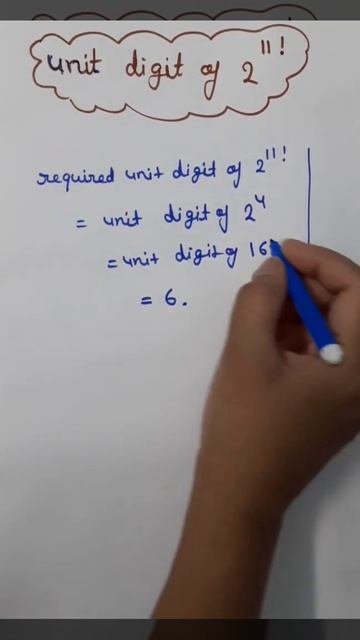 unit digit of 2^11!
required unit digit of 2^11!
= unit digit of 2^4
= unit digit of 16
= 6.